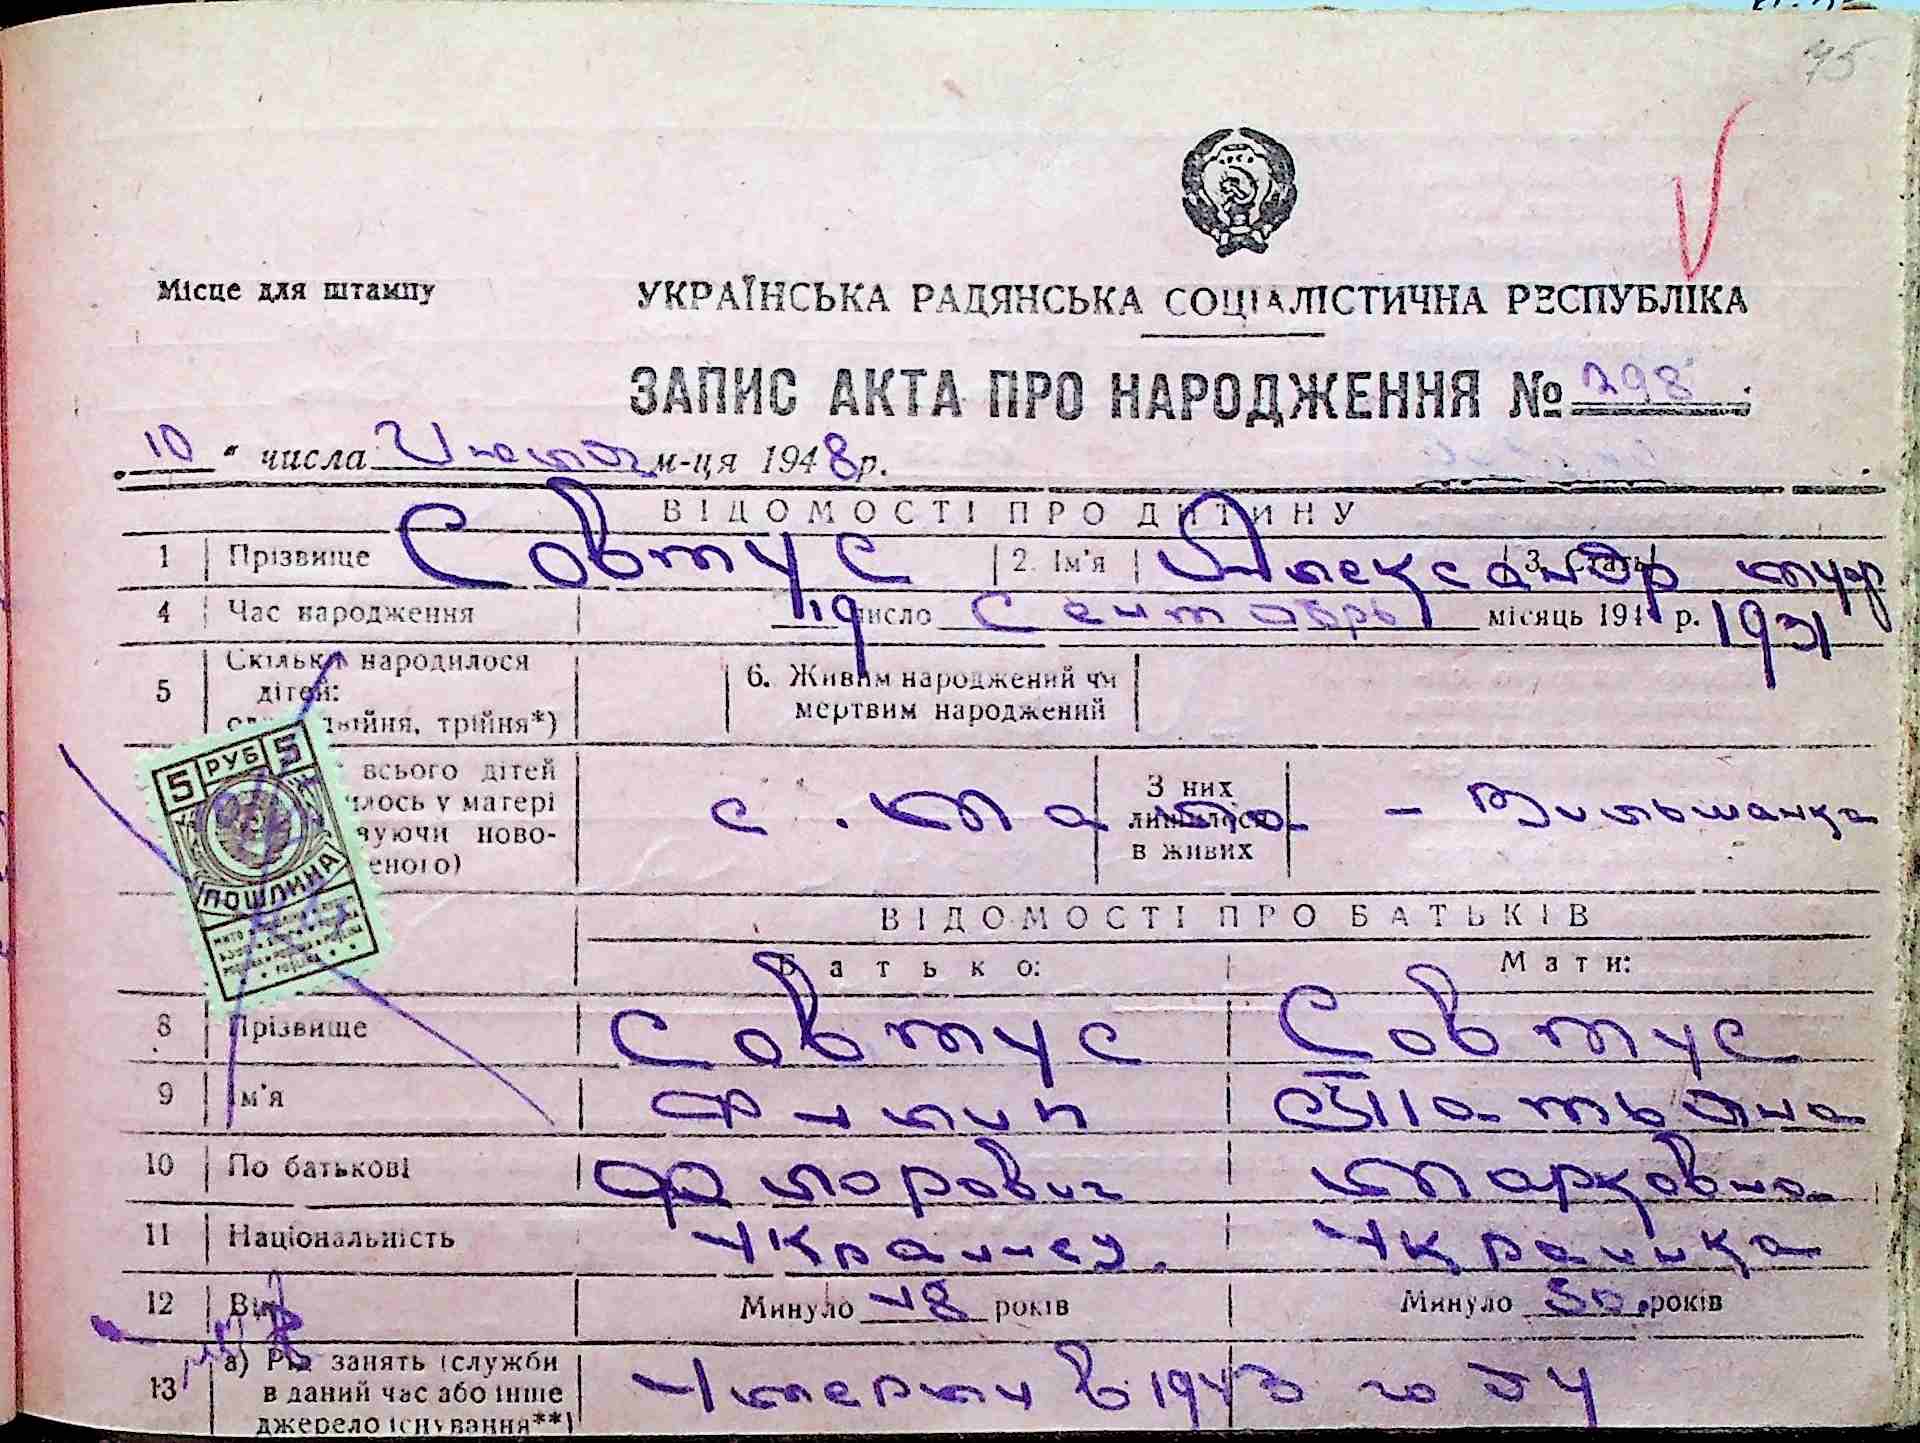 75
Місце для штампу
УКРАЇНСЬКА РАДЯНСЬКА СОЦІАЛІСТИЧНА РЕСПУБЛІКА
ЗАПИС АКТА ПРО НАРОДЖЕННЯ № 298
„10" числа м-ця 1948 р.
ВІДОМОСТІ ПРО ДИТИНУ
1 Прізвище Совтус 2. Ім'я Александр 3. Стать муж
4 Час народження 19 число Сентябрь місяць 194 р. 1931
5 Скільки народилося дітей: двійня, трійня*) 6. Живим народжений чи мертвим народжений
всього дітей
лось у матері
вуючи ново-
еного)
З них лишилося в живих
с. Мало - Вильшанка
5 РУБ 5
ПОШЛИНА
ВІДОМОСТІ ПРО БАТЬКІВ
Батько: Мати:
8 Прізвище Совтус Совтус
9 Ім'я Филип Татьяна
10 По батькові Марковна
11 Національність Украинец Украинка
12 Вік Минуло 48 років Минуло 50 років
13 а) Рід занять (служби
в даний час або інше
джерело існування**)
Умерли в 1943 году